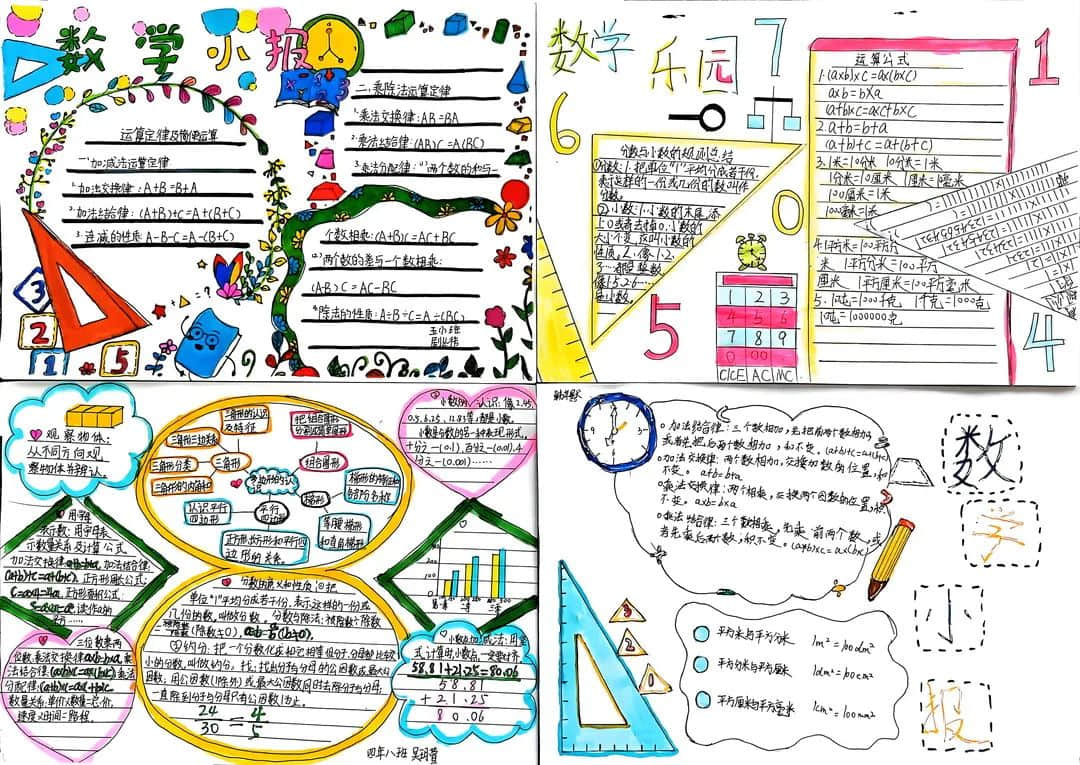 数学小报
运算定律及简便运算
一.加减法运算定律
1.加法交换律:A+B=B+A
2.加法结合律:(A+B)+C=A+(B+C)
3.连减的性质:A-B-C=A-(B+C)
二.乘除法运算定律
1.乘法交换律:AB=BA
2.乘法结合律:(AB)C=A(BC)
3.乘法分配律:(1)两个数的和与一
个数相乘:(A+B)C=AC+BC
(2)两个数的差与一个数相乘:
(A-B)C=AC-BC
4.除法的性质:A÷B÷C=A÷(BC)
3
2
1
5
数学乐园
7
1
6
0
5
4
分数与小数的
①分数:1.把单位"1"平均分成若干份,
表示这样的一份或几份的数叫作
分数。
②小数:1.小数的末尾,添
上0或者去掉0,小数的
大小不变,这叫小数的
性质。2.像1、2、
3…都是整数,
像1.5 2.6……
是小数。
1 2 3
4 5 6
7 8 9
0 00
C/CE AC MC
运算公式
1.(a×b)×c=a×(b×c)
a×b=b×a
a+b×c=a×c+b×c
2.a+b=b+a
(a+b)+c=a+(b+c)
3.1米=10分米 10分米=1米
1分米=10厘米 1厘米=1毫米
100厘米=1米
100毫米=1米
4.1平方米=100平方分
米 1平方分米=100平方
厘米 1平方厘米=100平方毫米
5.1吨=1000千克 1千克=1000克
1吨=1000000克
观察物体:
从不同方向观
整物体并辨认。
用字母
表示数:用字母表
示数量关系及计算公式
加法交换律a+b=b+a,加法结合律:
(a+b)+c=a+(b+c),正方形周长公式:
C=a×4=4a,正方形面积公式:
三位数乘两
位数:乘法交换律a×b=b×a,乘
法结合律(a×b)×c=a×(b×c)乘法
分配律:(a+b)×c=a×c+b×c
数量关系:单价×数量=总价,
速度×时间=路程。
三角形的认识
及特征
三角形三边关系
三角形分类
三角形的内角和
三角形
把组合图形
分割成简单图形
组合图形
多边形的认
识
认识平行
四边形
平行
四边形
梯形
梯形的特征和
各部分名称
等腰梯形
和直角梯形
正形、长方形和平行四
边形的关系。
分数的意义和性质:①把
单位"1"平均分成若干份,表示这样的一份或
几份的数,叫做分数。分数与除法:被除数÷除数
(除数≠0),a÷b=a/b(b≠0).
③约分:把一个分数化成和它相等但分子、分母都比较
小的分数,叫做约分。找:找出分子与分母的公因数或最大公
因数;用公因数(1除外)或最大公因数同时去除分子与分母;
一直除到分子与分母只有公因数1为止。
24/30=4/5
小数的认识:像2.45、
0.5、6.25、12.83等,都是小数。
小数是分数的另一种表现形式。
十分之一(0.1),百分之一(0.01),千
分之一(0.001)……
小数加减法:用竖
式计算时,小数点一定要对齐
58.81+21.25=80.06
58.81
+21.25
80.06
四年八班 吴玥萱
加法结合律:三个数相加,先把前两个数相加
或者先把后两个数相加,和不变。(a+b)+c=a+(b+c)
加法交换律:两个数相加,交换加数的位置,和
不变。a+b=b+a
乘法交换律:两个数相乘,交换两个因数的位置,积
不变。a×b=b×a
乘法结合律:三个数相乘,先乘前两个数,或
者先乘后两个数,积不变。(a×b)×c=a×(b×c)
3
2
0
平方米与平方分米 1m²=100dm²
平方分米与平方厘米 1dm²=100cm²
平方厘米与平方毫米 1cm²=100mm²
数
学
小
报